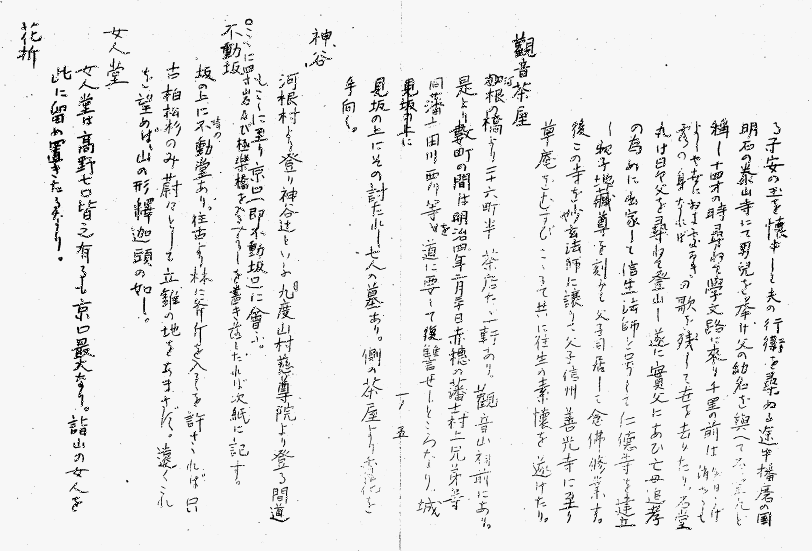 る子安の玉を懐中し夫の行衛を尋ぬる途中播磨の国
明石の太山寺にて男児を挙け父の幼名を与へて石童丸と
称し十四才の時尋ねて学文路に来り千里の前は
の歌を残して世を去りたり。石堂
丸は日々父を尋ねて登山し遂に実父にあひ亡母追孝
の為めに出家して信生法師と号して仁徳寺を建立
し親子地蔵尊を刻みて父子同居して念佛修業す。
後この寺を妙玄法師に譲りて父子信州善光寺に至り
草庵をむすびこゝろて共に往生の素懐を遂けたり。
觀音茶屋
河根の橋より二十六町半茶店たゞ一軒あり。觀音山祠前にあり。
是より数町の間は明治四年二月三十日赤穂の藩士村上兄弟等
同藩士田川西郊等を道に要して復讐せしところなり、城
見坂の上に
一ノ五
見坂の上にその討たれし七人の墓あり。側の茶屋より香花を
手向く。
神谷
河根村より登り神谷辻といふ九度山村慈尊院より登る間道
もこゝに至り京口(即不動坂口)に會ふ。
○こゝに四寸岩及び極楽橋を登るを書き落したれば次紙に記す。
不動坂
坂の上に不動堂あり。往古より林に斧斤を入るを許さゞれば只
古柏松杉のみ蔚々として立錐の地をあまさず。遠くこれ
を望めば、時の山の形釋迦頭の如し。
女人堂
女人堂は高野七口皆之有るも京口最大なり。詣山の女人を
此に留め置きたるなり。
花折